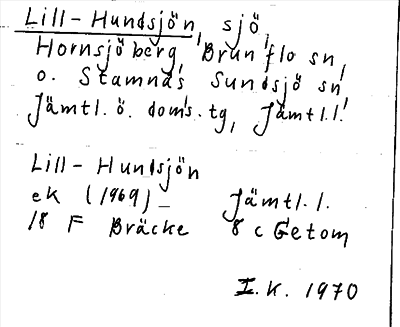 Lill-Hundsjön, sjö,
Hornsjöberg, Brunflo sn,
o. Stamnäs Sundsjö sn,
Jämtl. ö. doms.tg, Jämtl.l.
Lill-Hundsjön
ek (1969) – Jämtl. l.
18 F Bräcke 8 c Getom
I.K. 1970